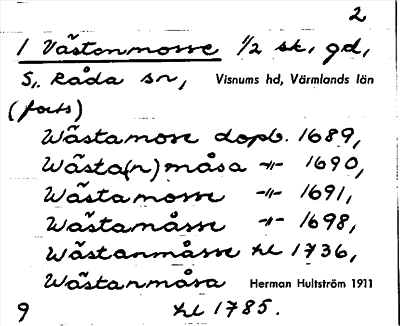 2
1 Västanmosse 1/2 sk. gd,
S. Råda sn, Visnums hd, Värmlands län
(forts)
Wästamose dopb. 1689,
Wästa(n)måsa -"- 1690,
Wästamosse -"- 1691,
Wästamåsse -"- 1698,
Wästanmåsse hl 1736,
Wästanmåsa Herman Hultström 1911
9 hl 1785.